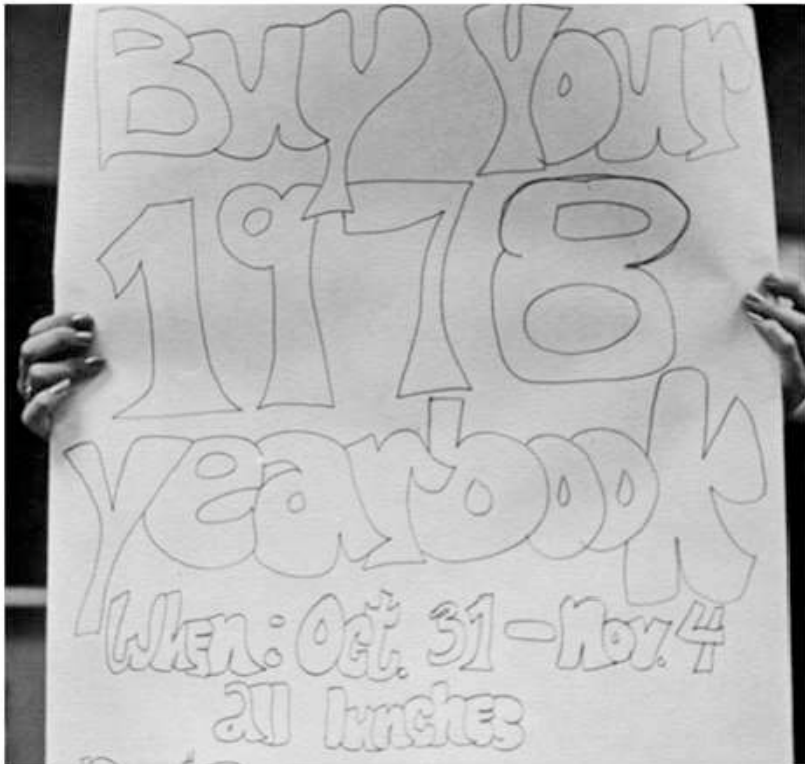 Buy Your
1978
yearbook
When: Oct. 31 - Nov. 4
all lunches